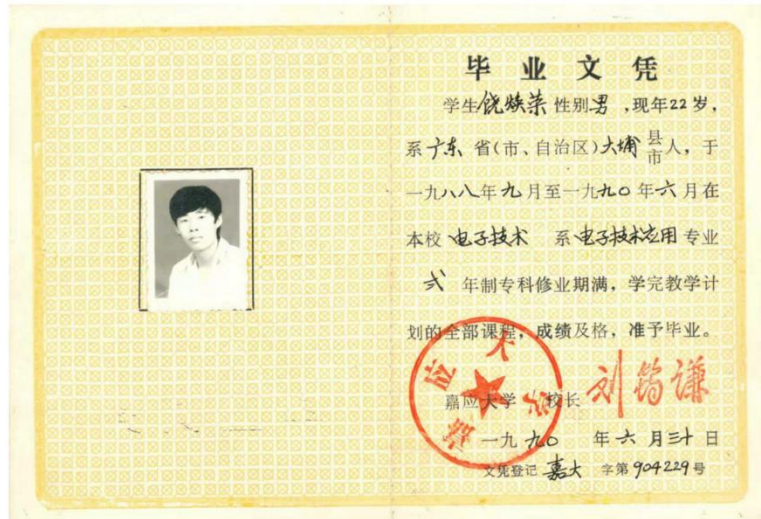 毕业文凭
学生饶焕荣性别男,现年22岁,
系广东省(市、自治区)大埔县市人,于
一九八八年九月至一九九〇年六月在
本校电子技术 系电子技术应用专业
弍 年制专科修业期满,学完教学计
划的全部课程,成绩及格,准予毕业。
嘉应大学 校长 刘
一九九〇 年六月三十日
文凭登记嘉大 字第904229号
嘉应大学